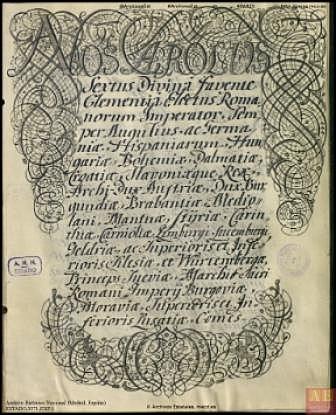 NOS CAROLUS
Sextus Divina favente
Clementia Electus Roma
norum Imperator, Sem
per Augustus, ac Germa
niæ, Hispaniarum, Hun
gariæ, Bohemiæ, Dalmatiæ,
Croatiæ, Slavoniæque Rex,
Archi Dux Austriæ, Dux Bur
gundiæ, Brabantiæ, Medio
lani, Mantuæ, Styriæ, Carin
thiæ, Carnioliæ, Lymburgi, Lucemburgi,
Geldriæ, ac Superioris et Infe
rioris Silesiæ, et Würtembergæ,
Princeps Sueviæ, Marchio Sacri
Romani Imperij Burgoviæ
Moraviæ, Superioris et In
ferioris Lusatiæ, Comes
A.H.N.
ESTADO
Archivo Histórico Nacional (Madrid, España)